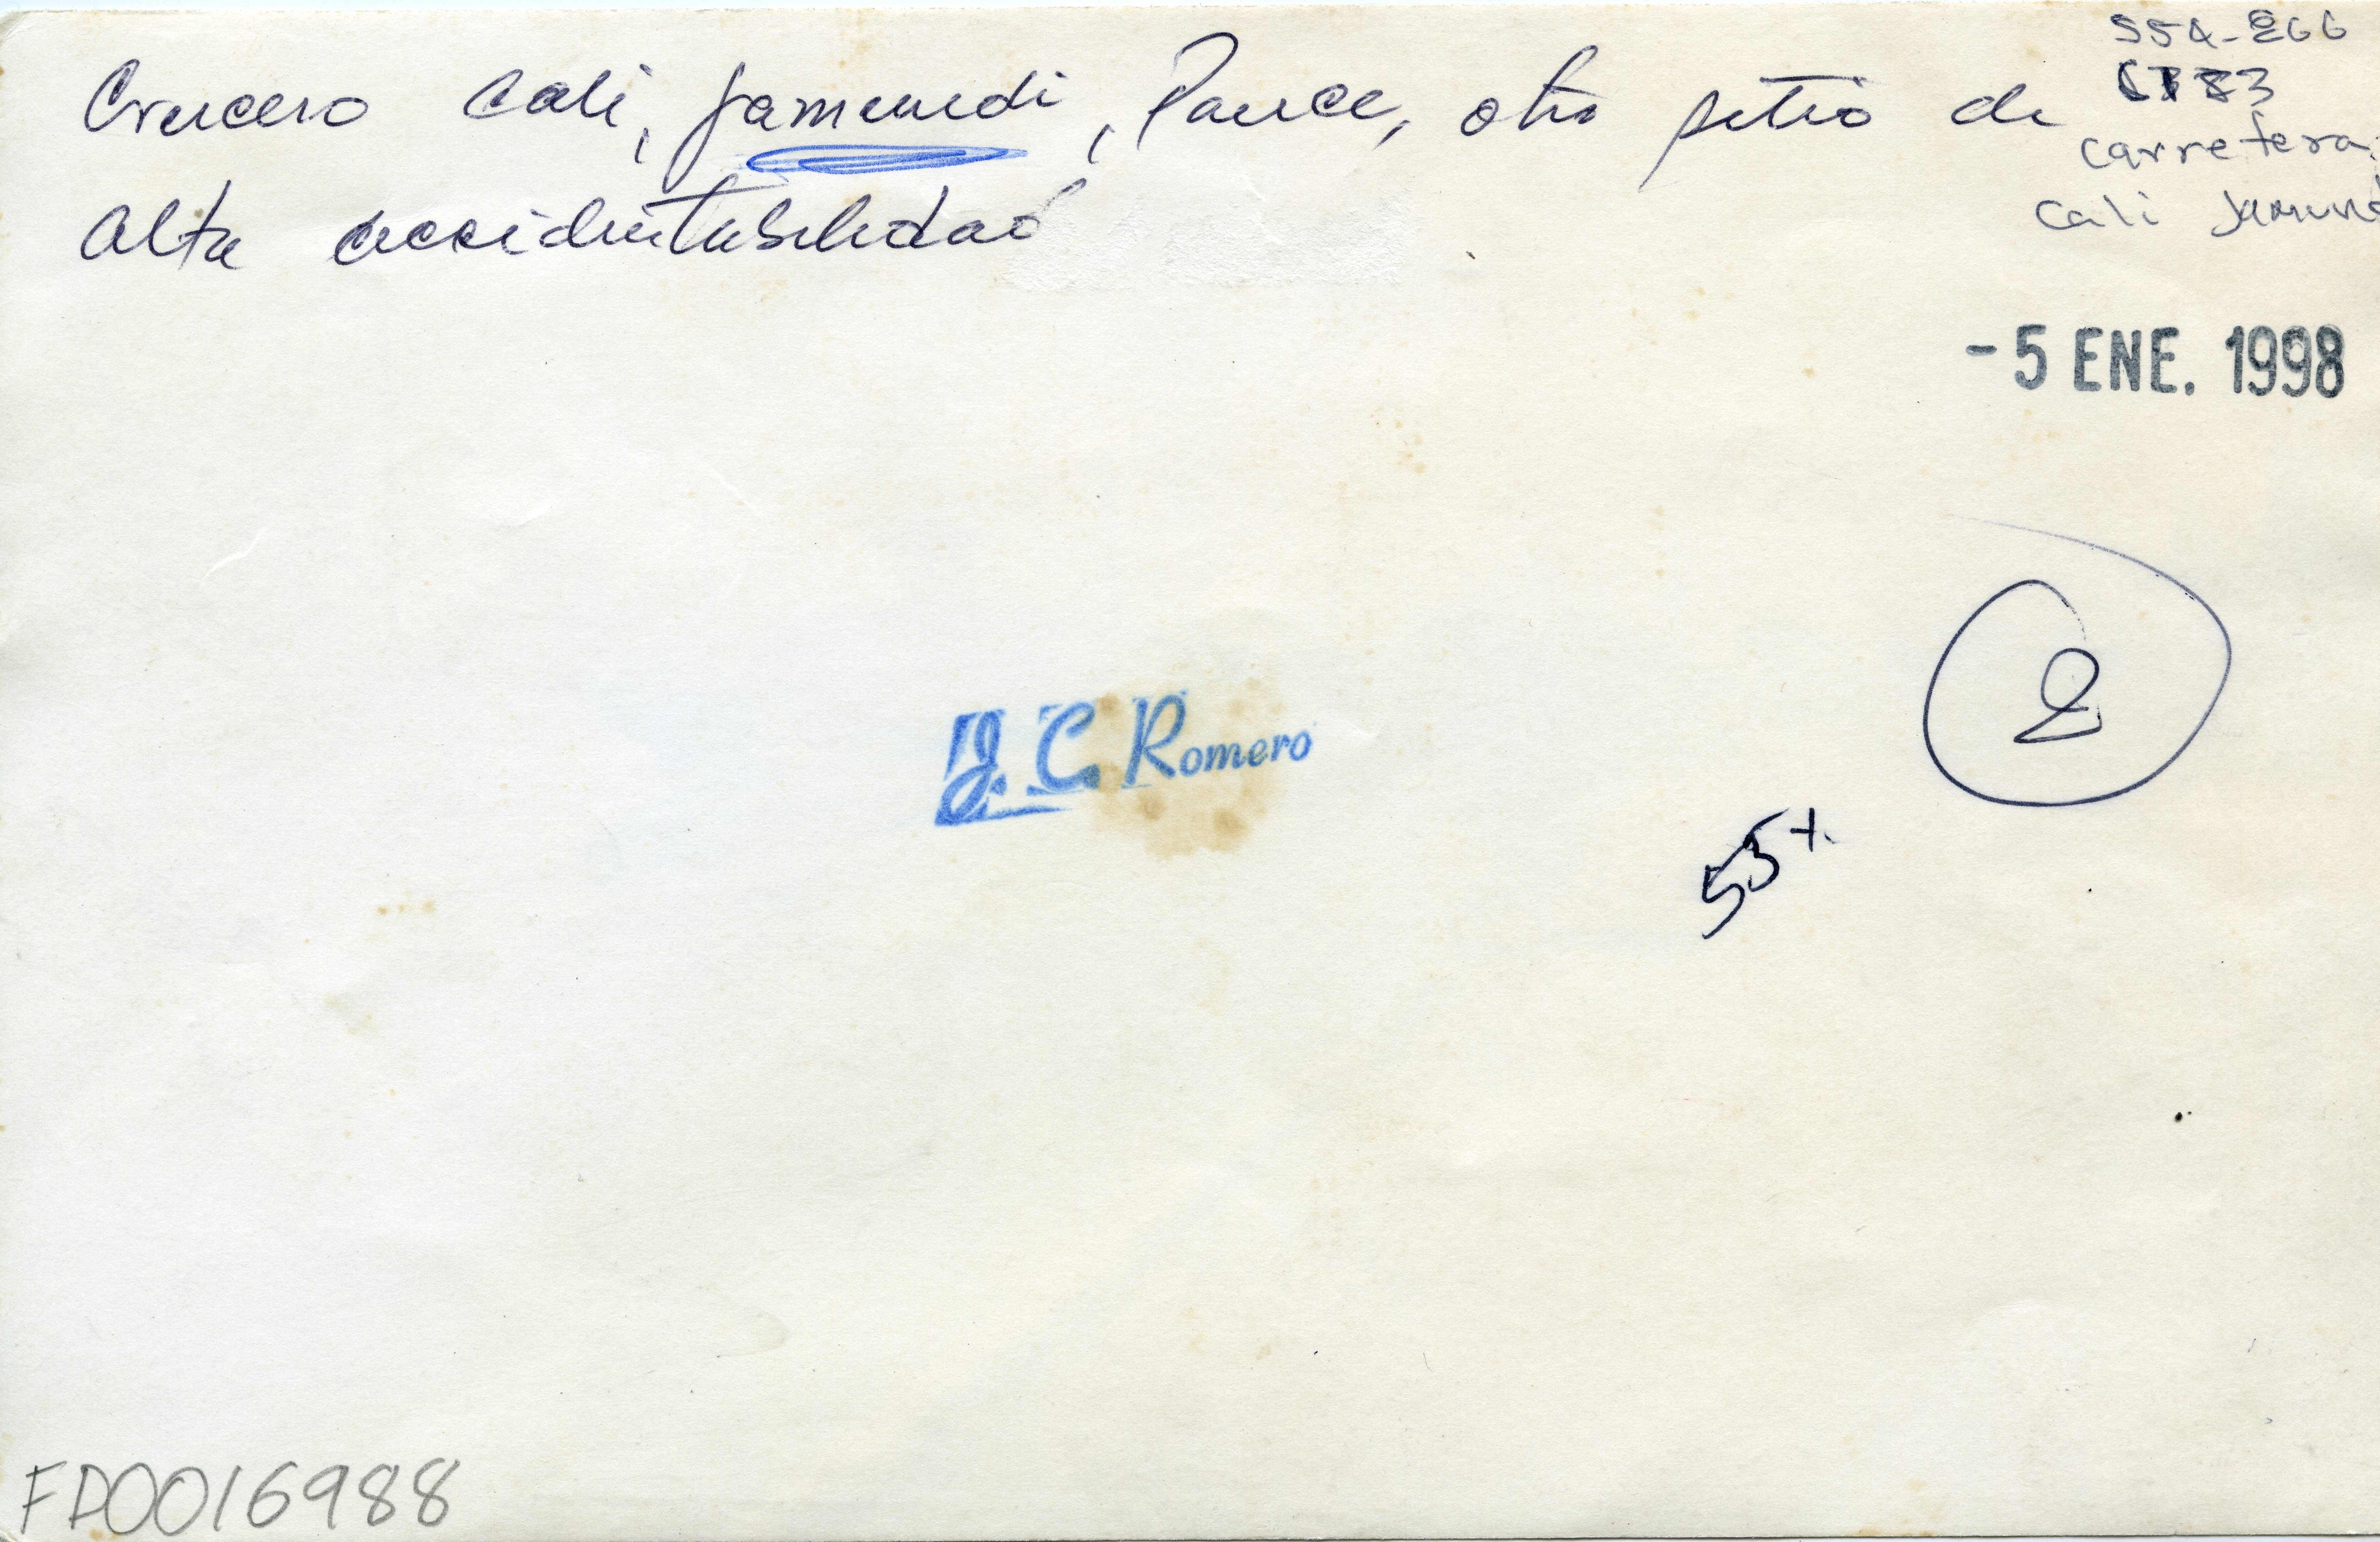 Crucero Cali, Jamundi, Pance, otro sitio de
alta accidentabilidad
554-266
carretera
Cali Jamund
- 5 ENE. 1998
2
J. C. Romero
55%
FD0016988